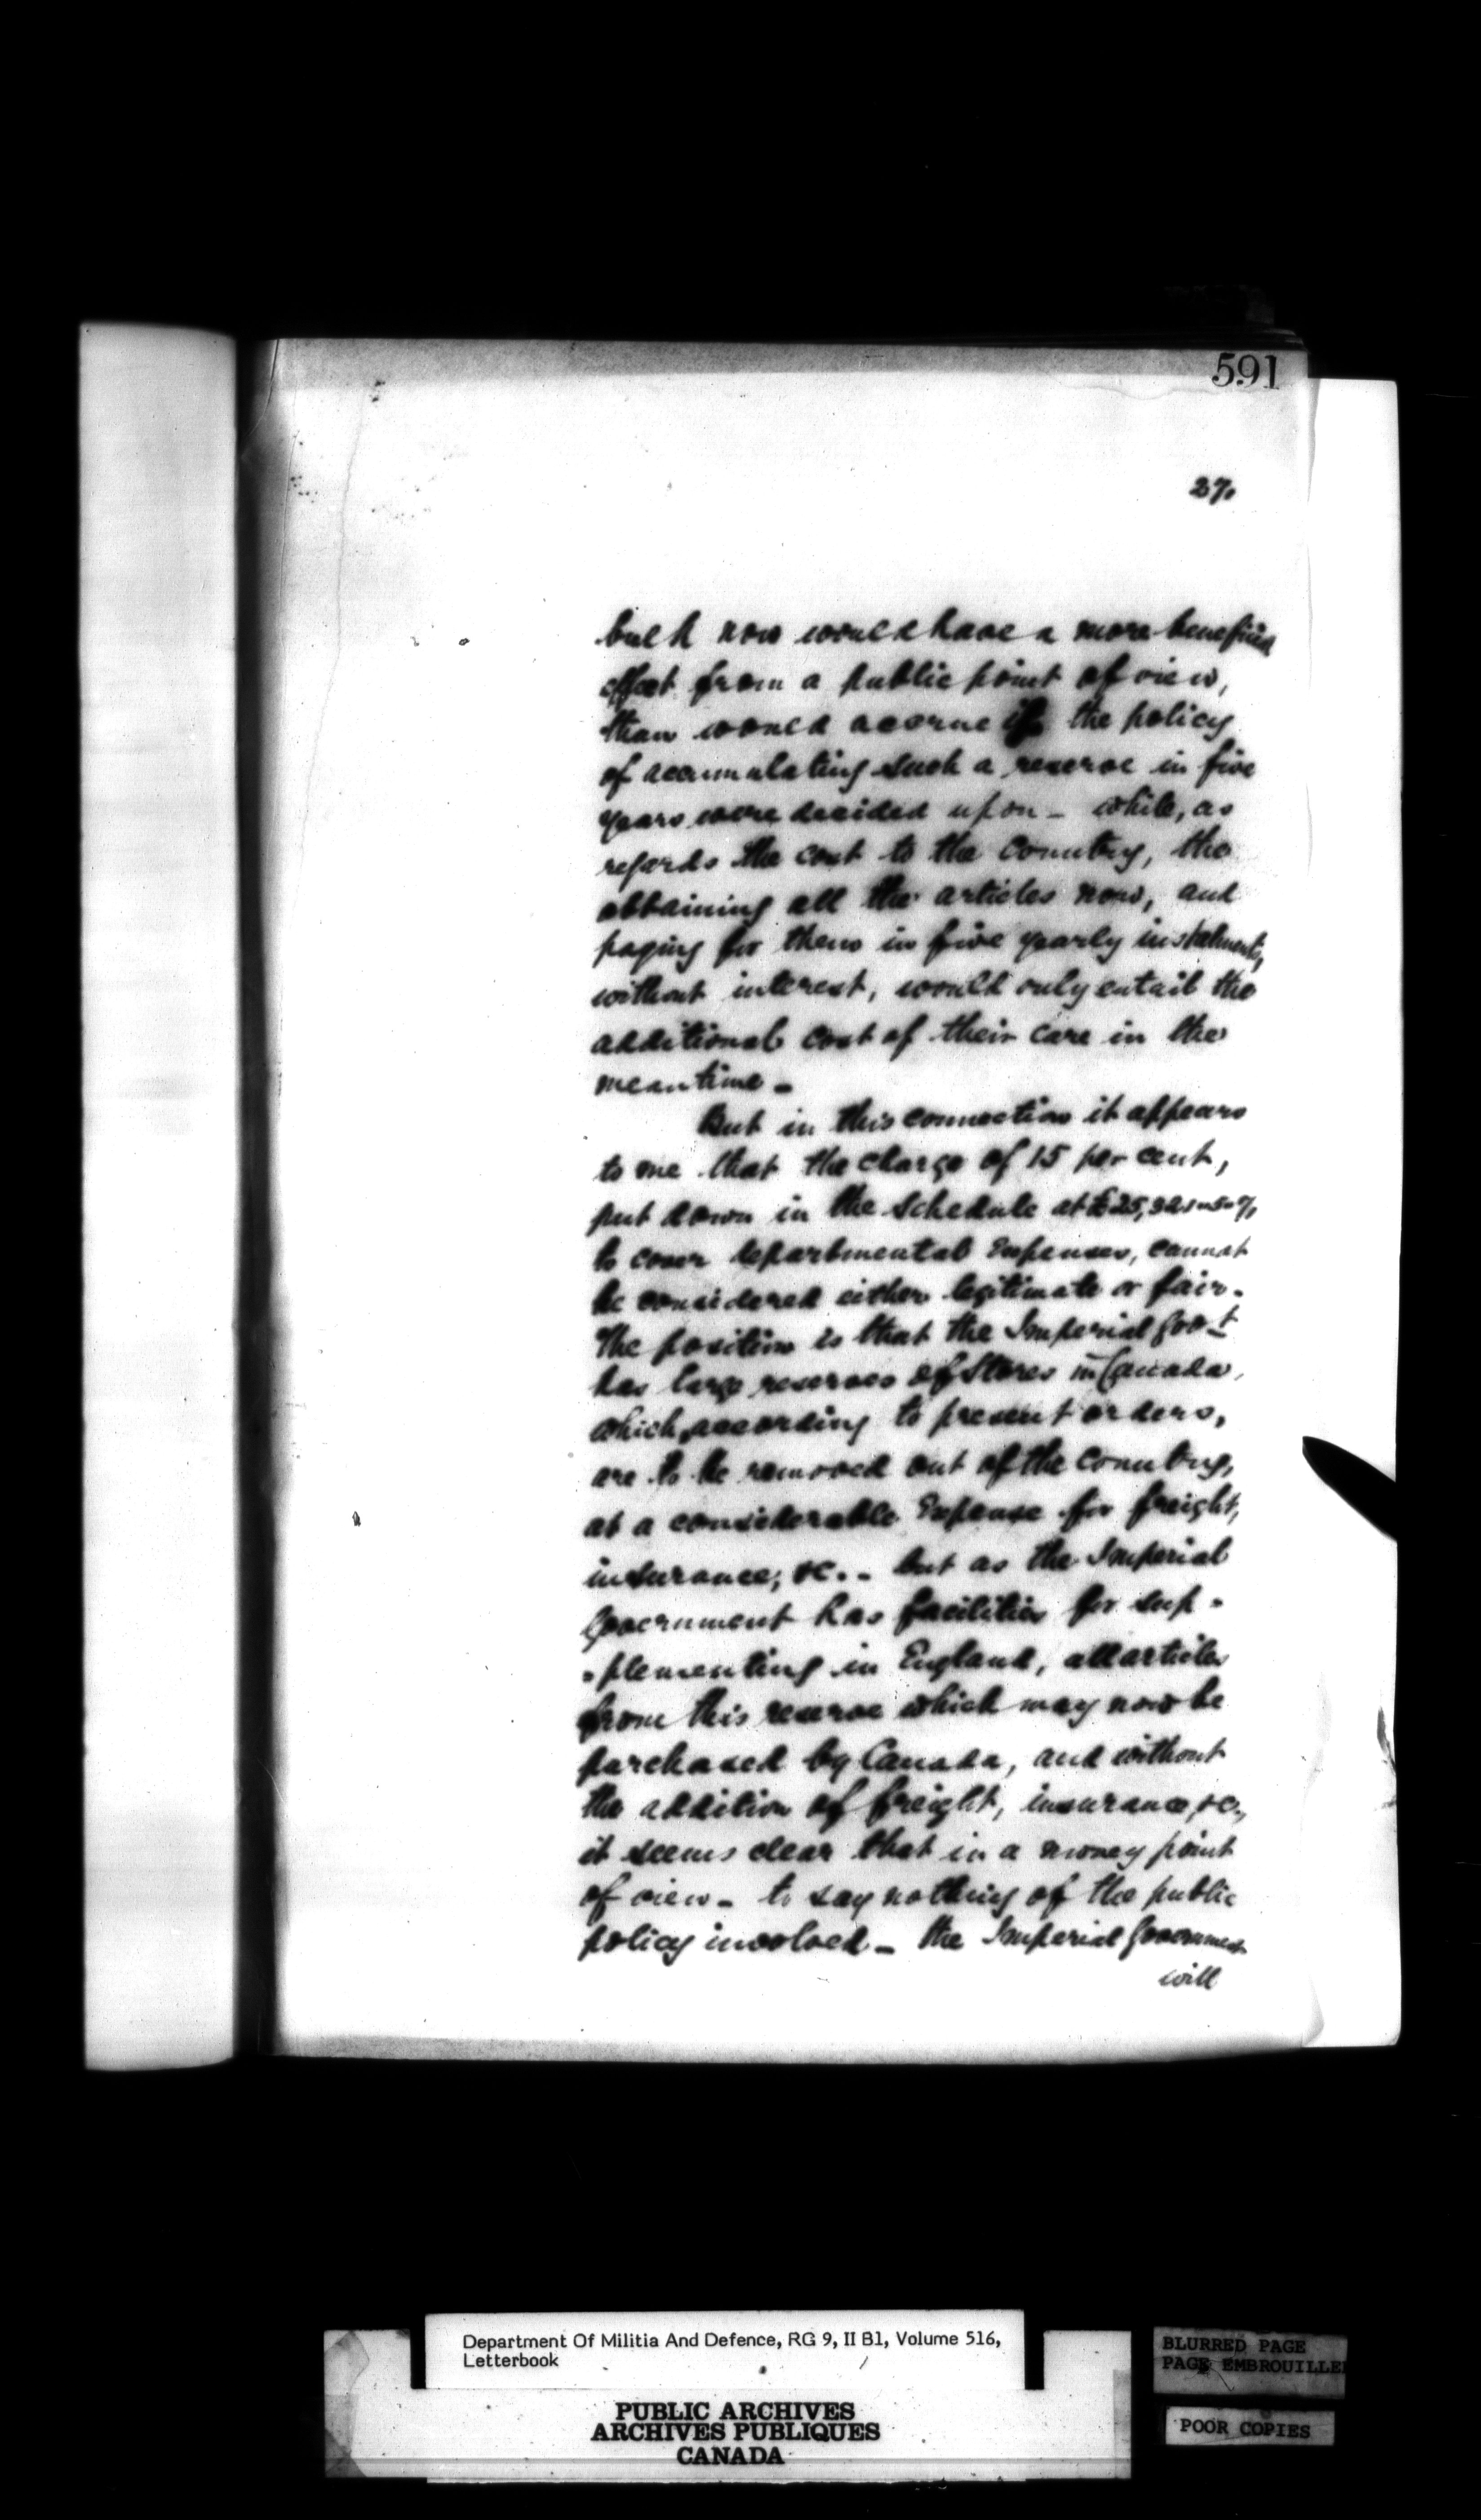 591
27.
bulk now would have a more beneficial
effect from a public point of view,
than would accrue if the policy
of accumulating such a reserve in five
years were decided upon - while, as
regards the cost to the Country, the
obtaining all the articles now, and
paying for them in five yearly instalments,
without interest, would only entail the
additional cost of their care in the
meantime -
But in this connection it appears
to me that the charge of 15 per cent,
put down in the Schedule at
to cover departmental Expenses, cannot
be considered either legitimate or fair.
The position is that the Imperial Govt
has large reserves of Stores in Canada,
which, according to present orders,
are to be removed out of the Country,
at a considerable Expense for freight,
insurance, &c. - but as the Imperial
Government has facilities for sup-
-plementing in England, all articles
from this reserve which may now be
purchased by Canada, and without
the addition of freight, insurance, &c.,
it seems clear that in a money point
of view - to say nothing of the public
policy involved - the Imperial Government
will
Department Of Militia And Defence, RG 9, II B1, Volume 516,
Letterbook
PUBLIC ARCHIVES
ARCHIVES PUBLIQUES
CANADA
BLURRED PAGE
PAGE EMBROUILLEE
POOR COPIES